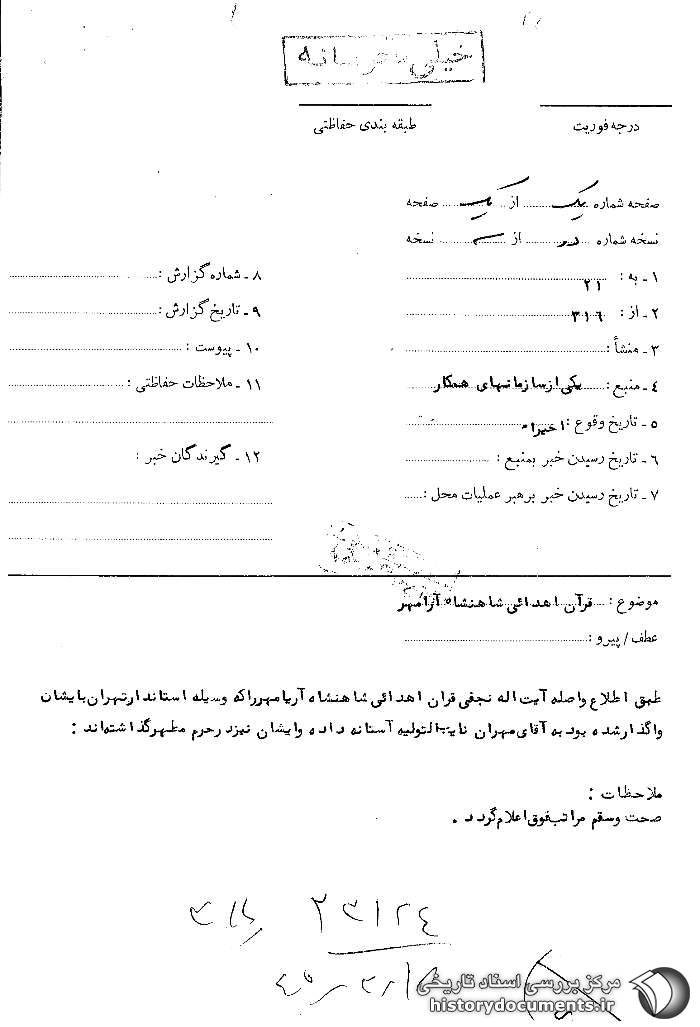 خیلی محرمانه
درجه فوریت
طبقه بندی حفاظتی
صفحه شماره یک از یک صفحه
نسخه شماره دو از نسخه
۱ ـ به : ۲۱
۲ ـ از : ۳۱۶
۳ ـ منشأ :
۴ ـ منبع : یکی از سازمانهای همکار
۵ ـ تاریخ وقوع : اخیرا"
۶ ـ تاریخ رسیدن خبر بمنبع :
۷ ـ تاریخ رسیدن خبر برهبر عملیات محل :
۸ ـ شماره گزارش :
۹ ـ تاریخ گزارش :
۱۰ ـ پیوست :
۱۱ ـ ملاحظات حفاظتی :
۱۲ ـ گیرندگان خبر :
موضوع : قرآن اهدائی شاهنشاه آرامهر
عطف / پیرو :
طبق اطلاع واصله آیت اله نجفی قران اهدائی شاهنشاه آریامهر راکه وسیله استاندار تهران بایشان
واگذار شده بود به آقای مهران نایب التولیه آستانه داده وایشان نیز در حرم مطهر گذاشته‌اند :
ملاحظات :
صحت وسقم مراتب فوق اعلام گردد .
۲۳۱۲۴
مرکز بررسی اسناد تاریخی
historydocuments.ir